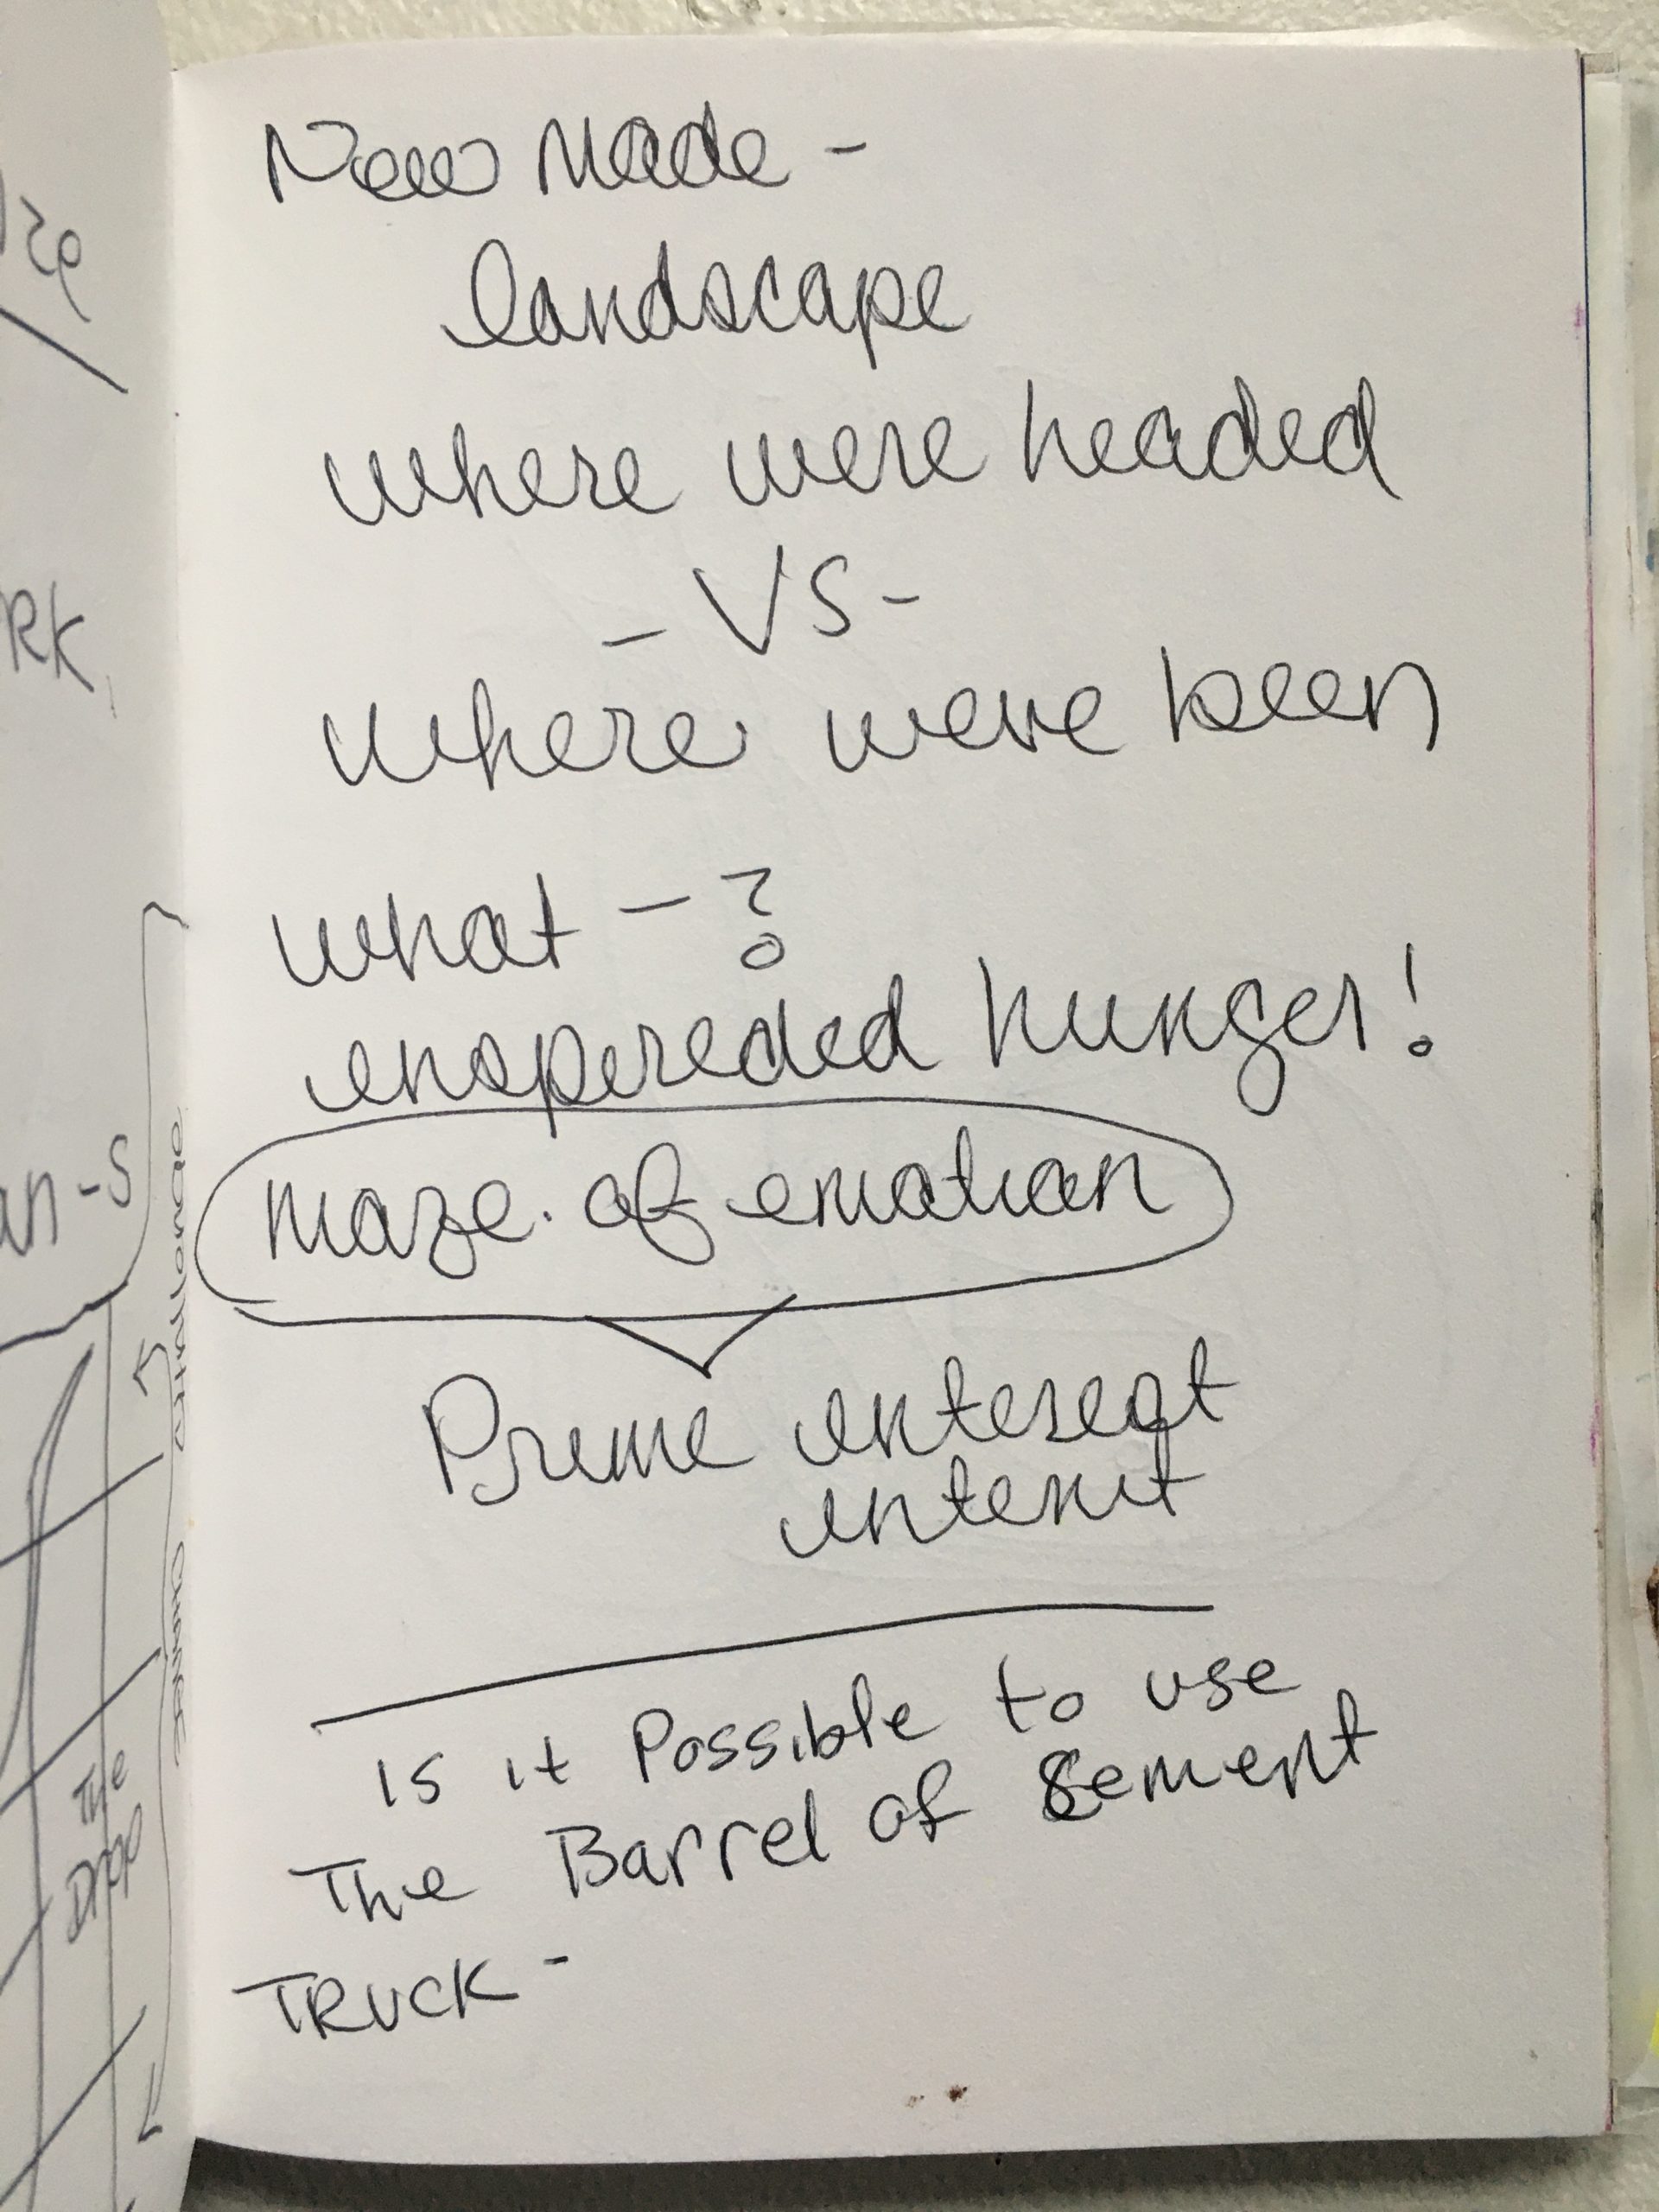 New Made -
landscape
where were headed
- VS -
where weve been
what - ?
hunger!
maze of emotion
Prime interest
intent
is it Possible to use
The Barrel of Cement
TRUCK -
RK
an-S
CHALLENGE
CHANGE
The
Drop